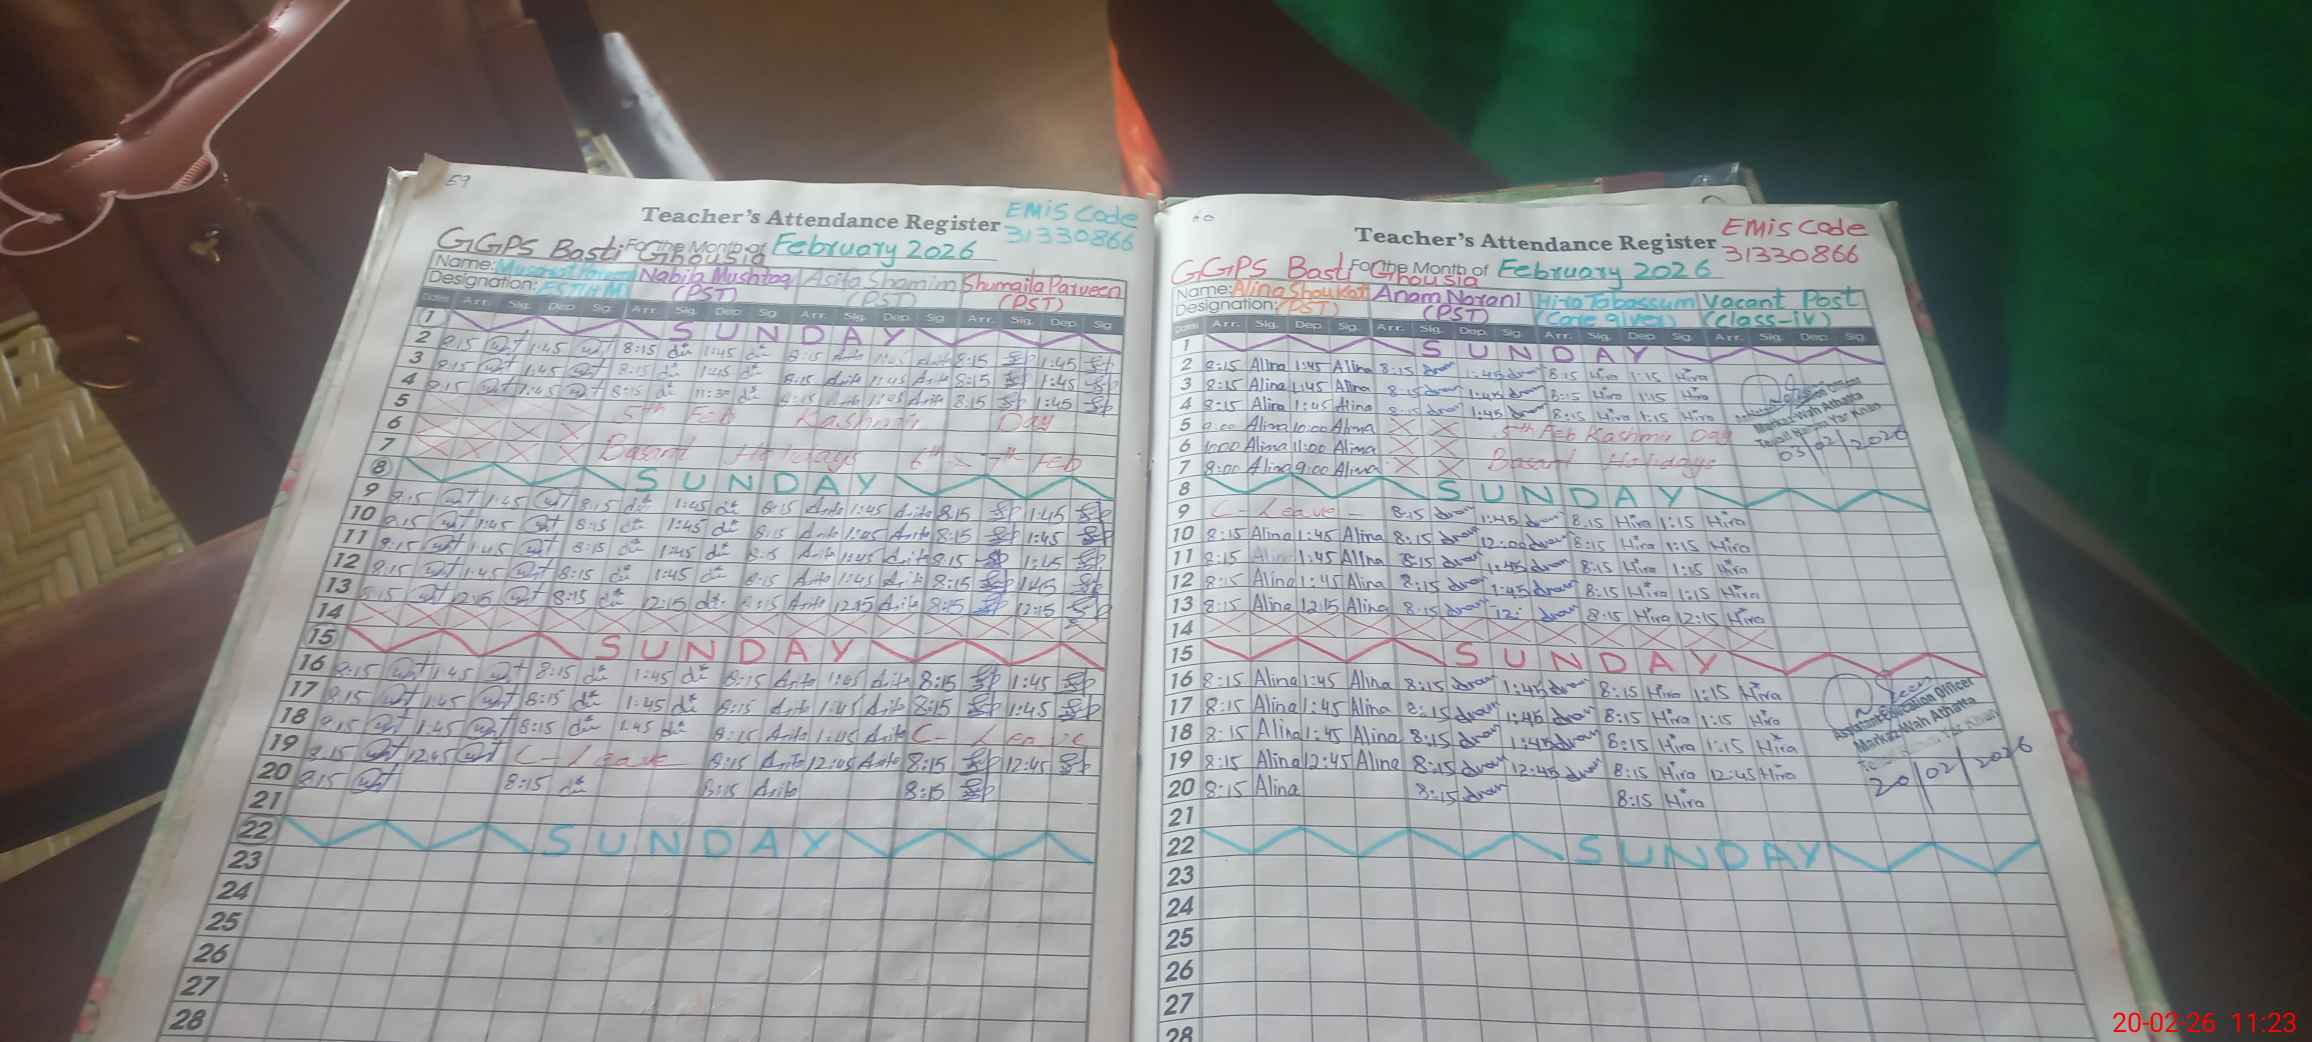 59
Teacher's Attendance Register
EMIS Code
31330866
GGPS Basti Ghousia For the Month of February 2026
Name: Nabila Mushtaq Asifa Shamim Shumaila Parveen
Designation: ESTHM (PST) (PST) (PST)
Dates Arr. Sig. Dep Sig. Arr. Sig. Dep Sig Arr. Sig. Dep. Sig Arr. Sig. Dep. Sig
1 SUNDAY
2 8:15 1:45 8:15 1:45 8:15 1:45 8:15 1:45
3 8:15 1:45 8:15 1:45 8:15 1:45 8:15 1:45
4 8:15 1:45 8:15 11:30 8:15 1:45 8:15 1:45
5 5th Feb Kashmir Day
6
7 Basant Holidays 6th 7th Feb
8 SUNDAY
9 8:15 1:45 8:15 1:45 8:15 1:45 8:15 1:45
10 8:15 1:45 8:15 1:45 8:15 1:45 8:15 1:45
11 8:15 1:45 8:15 1:45 8:15 1:45 8:15 1:45
12 8:15 1:45 8:15 1:45 8:15 1:45 8:15 1:45
13 8:15 12:15 8:15 12:15 8:15 12:15 8:15 12:15
14
15 SUNDAY
16 8:15 1:45 8:15 1:45 8:15 1:45 8:15 1:45
17 8:15 1:45 8:15 1:45 8:15 1:45 8:15 1:45
18 8:15 1:45 8:15 1:45 8:15 1:45 C- Leave
19 8:15 12:45 C- Leave 8:15 12:45 8:15 12:45
20 8:15 8:15 8:15 8:15
21
22 SUNDAY
23
24
25
26
27
28
60
Teacher's Attendance Register
EMIS Code
31330866
GGPS Basti Ghousia For the Month of February 2026
Name: Alina Shoukat Anam Norani Hira Tabassum Vacant Post
Designation: (PST) (PST) (Care given) (Class-IV)
Dates Arr. Sig. Dep. Sig. Arr. Sig. Dep. Sig. Arr. Sig. Dep. Sig Arr. Sig. Dep. Sig
1 SUNDAY
2 8:15 Alina 1:45 Alina 8:15 1:45 8:15 Hira 1:15 Hira
3 8:15 Alina 1:45 Alina 8:15 1:45 8:15 Hira 1:15 Hira
4 8:15 Alina 1:45 Alina 8:15 1:45 8:15 Hira 1:15 Hira
5 9:00 Alina 10:00 Alina 5th Feb Kashmir Day
6 10:00 Alina 11:00 Alina
7 8:00 Alina 9:00 Alina Basant Holidays
Markaz-Wah Athatta
03/02/2026
8 SUNDAY
9 C- Leave - 8:15 1:45 8:15 Hira 1:15 Hira
10 8:15 Alina 1:45 Alina 8:15 12:00 8:15 Hira 1:15 Hira
11 8:15 Alina 1:45 Alina 8:15 1:45 8:15 Hira 1:15 Hira
12 8:15 Alina 1:45 Alina 8:15 1:45 8:15 Hira 1:15 Hira
13 8:15 Alina 12:15 Alina 8:15 12: 8:15 Hira 12:15 Hira
14
15 SUNDAY
16 8:15 Alina 1:45 Alina 8:15 1:45 8:15 Hira 1:15 Hira
17 8:15 Alina 1:45 Alina 8:15 1:45 8:15 Hira 1:15 Hira
18 8:15 Alina 1:45 Alina 8:15 1:45 8:15 Hira 1:15 Hira
19 8:15 Alina 12:45 Alina 8:15 12:45 8:15 Hira 12:45 Hira
20 8:15 Alina 8:15 8:15 Hira
Assistant Education Officer
Markaz-Wah Athatta
20/02/2026
21
22 SUNDAY
23
24
25
26
27
28
20-02-26 11:23